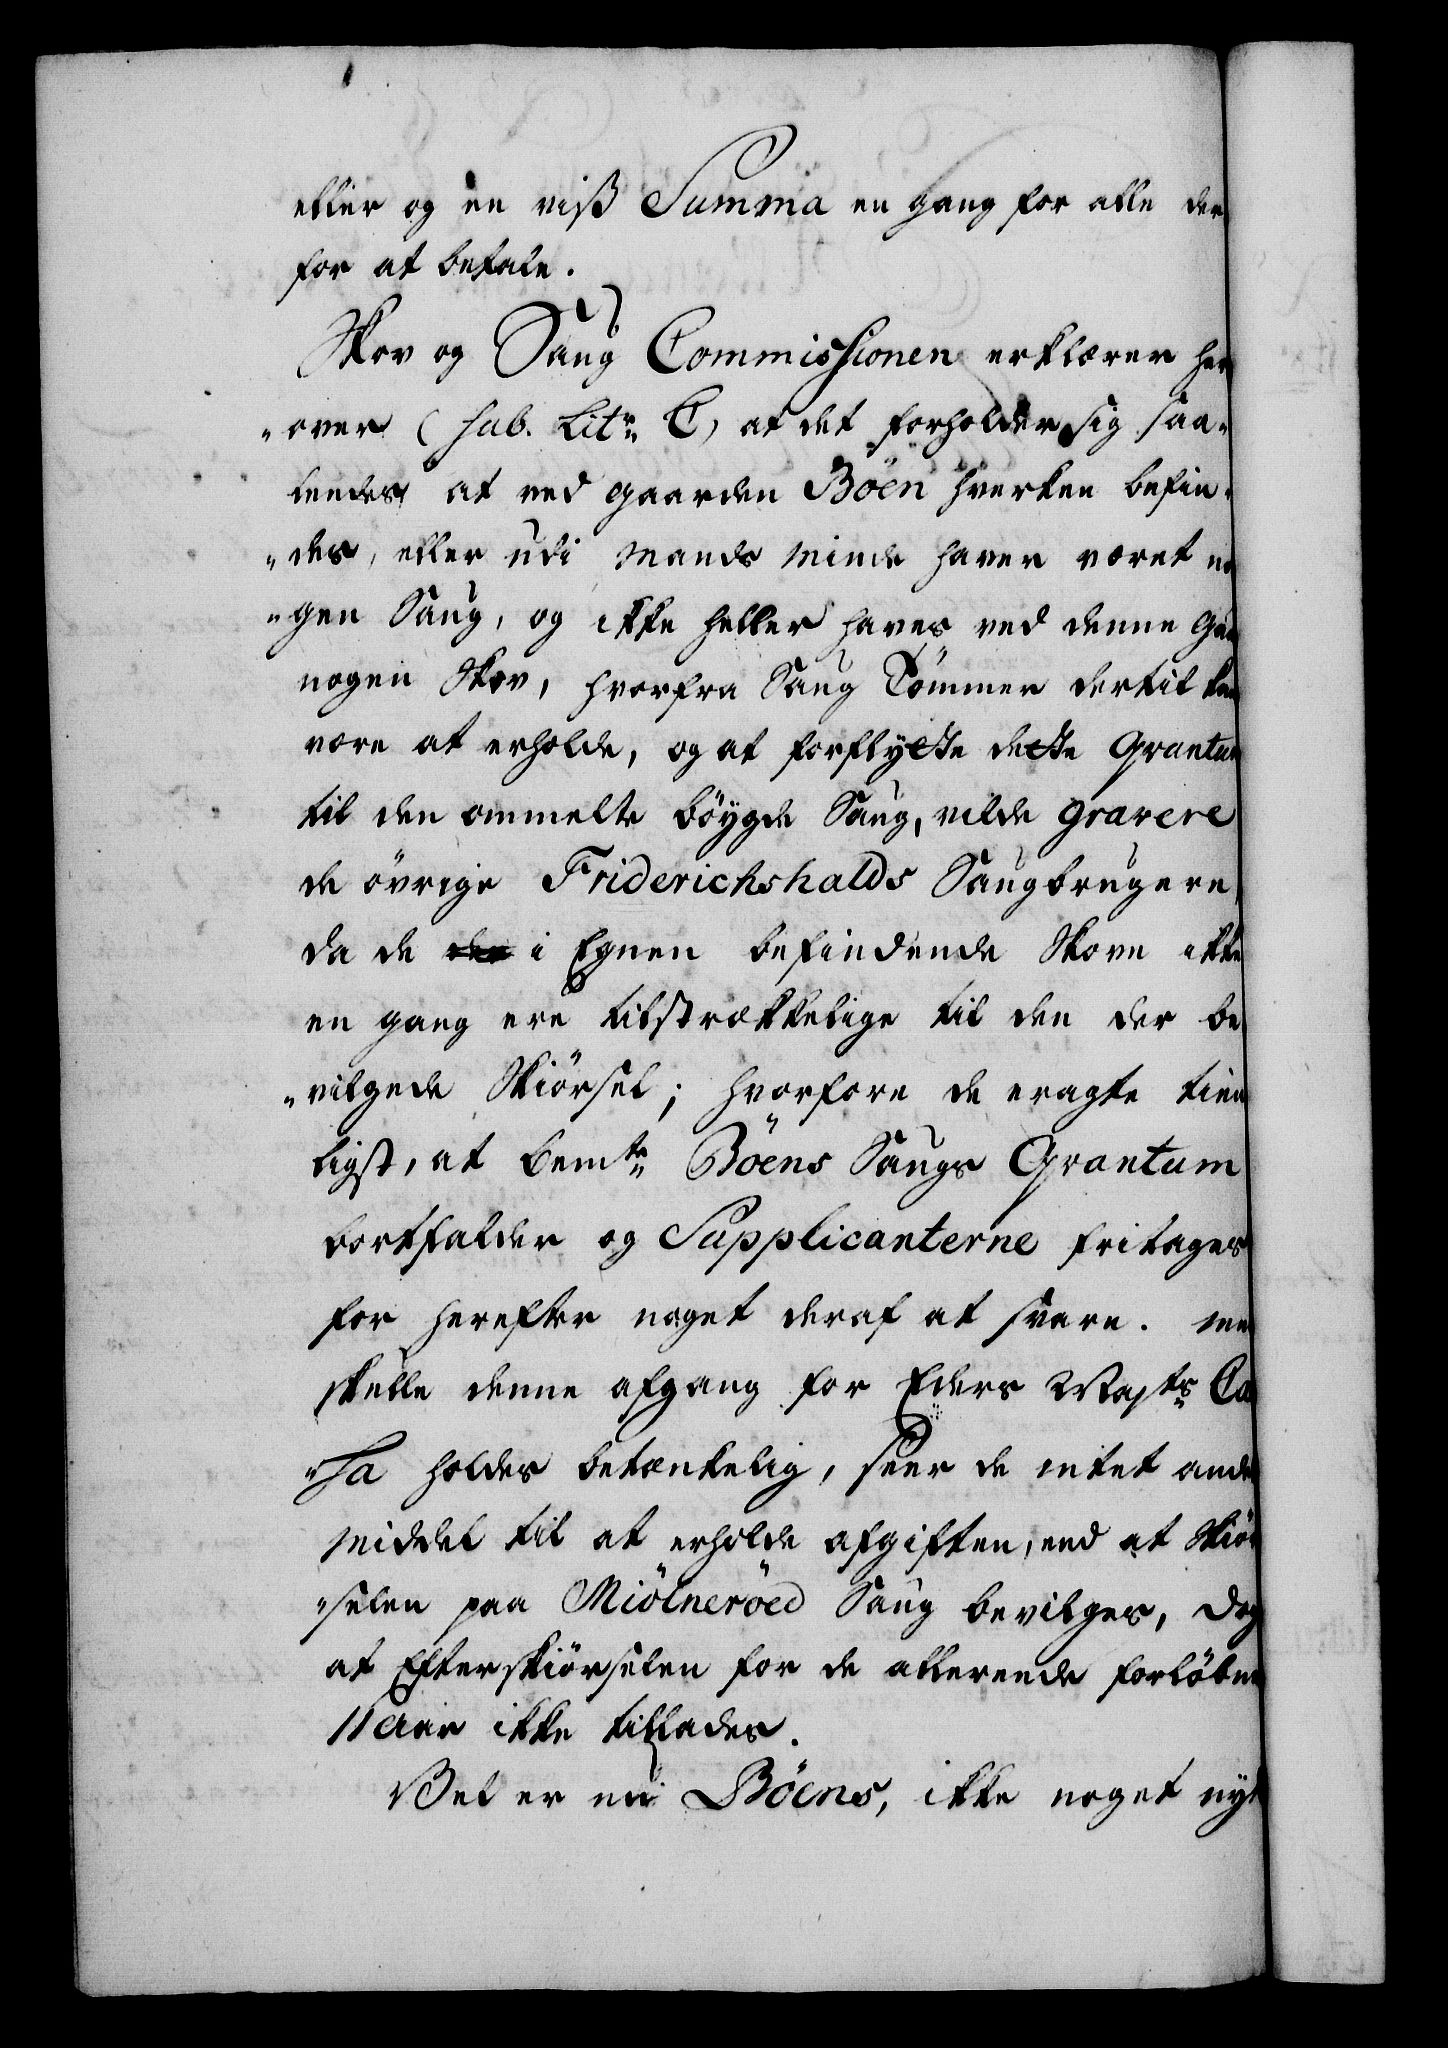 eller og en viß Summa en gang for alle der
for at betale.
Skov og Saug Commissionen erklærer her
"over (sub. Litr. C) at det forholder sig saa"
leedes at ved gaarden Böen hverken befin"
"des, eller udi Mands Minde haver været no
"gen Saug, og ikke heller haves ved denne Gaa
nogen Skov, hvorfra Saug Tömmer dertil kan
være at erholde, og at forflytte dette Qvantum
til den ommelte böygde Saug, vilde gravere
de övrige Friderichshalds Saugbrugere,
da de i Egnen befindende Skove ikke
en gang ere tilstrækkelige til den der be
"vilgede Skiörsel; hvorfore de eragte tien
ligst, at bemte Böens Saugs Qvantum
bortfalder og Supplicanterne fritages
for herefter noget deraf at svare. Men
skulle denne afgang for Eders Mayts Ca
"ssa holdes betænkelig, seer de intet andet
Middel til at erholde afgiften, end at Skiör
"selen paa Miölneröed Saug bevilges, dog
at Efterskiörselen for de allereede forløbne
11 Aar ikke tillades.
Vel er nu Böens, ikke noget nyt